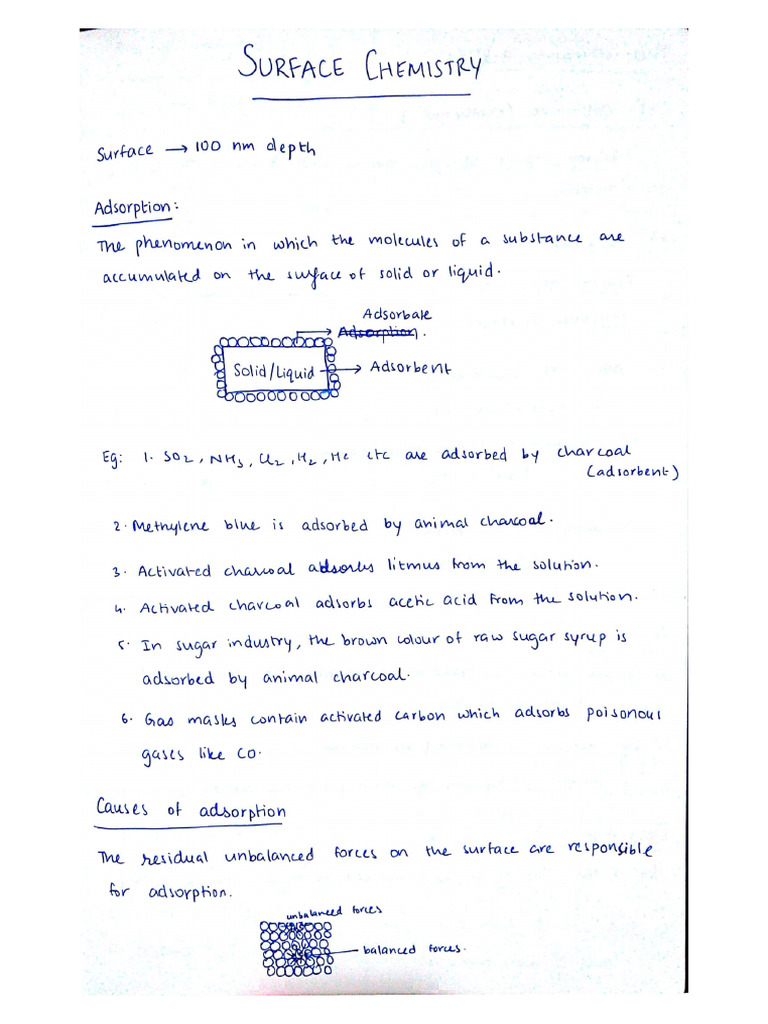 SURFACE CHEMISTRY
Surface → 100 nm depth
Adsorption:
The phenomenon in which the molecules of a substance are
accumulated on the surface of solid or liquid.
Adsorbate
Adsorption.
Solid/Liquid → Adsorbent
Eg: 1. SO2, NH3, Cl2, H2, He etc are adsorbed by charcoal
(adsorbent)
2. Methylene blue is adsorbed by animal charcoal.
3. Activated charcoal adsorbs litmus from the solution.
4. Activated charcoal adsorbs acetic acid from the solution.
5. In sugar industry, the brown colour of raw sugar syrup is
adsorbed by animal charcoal.
6. Gas masks contain activated carbon which adsorbs poisonous
gases like CO.
Causes of adsorption
The residual unbalanced forces on the surface are responsible
for adsorption.
unbalanced forces
balanced forces.